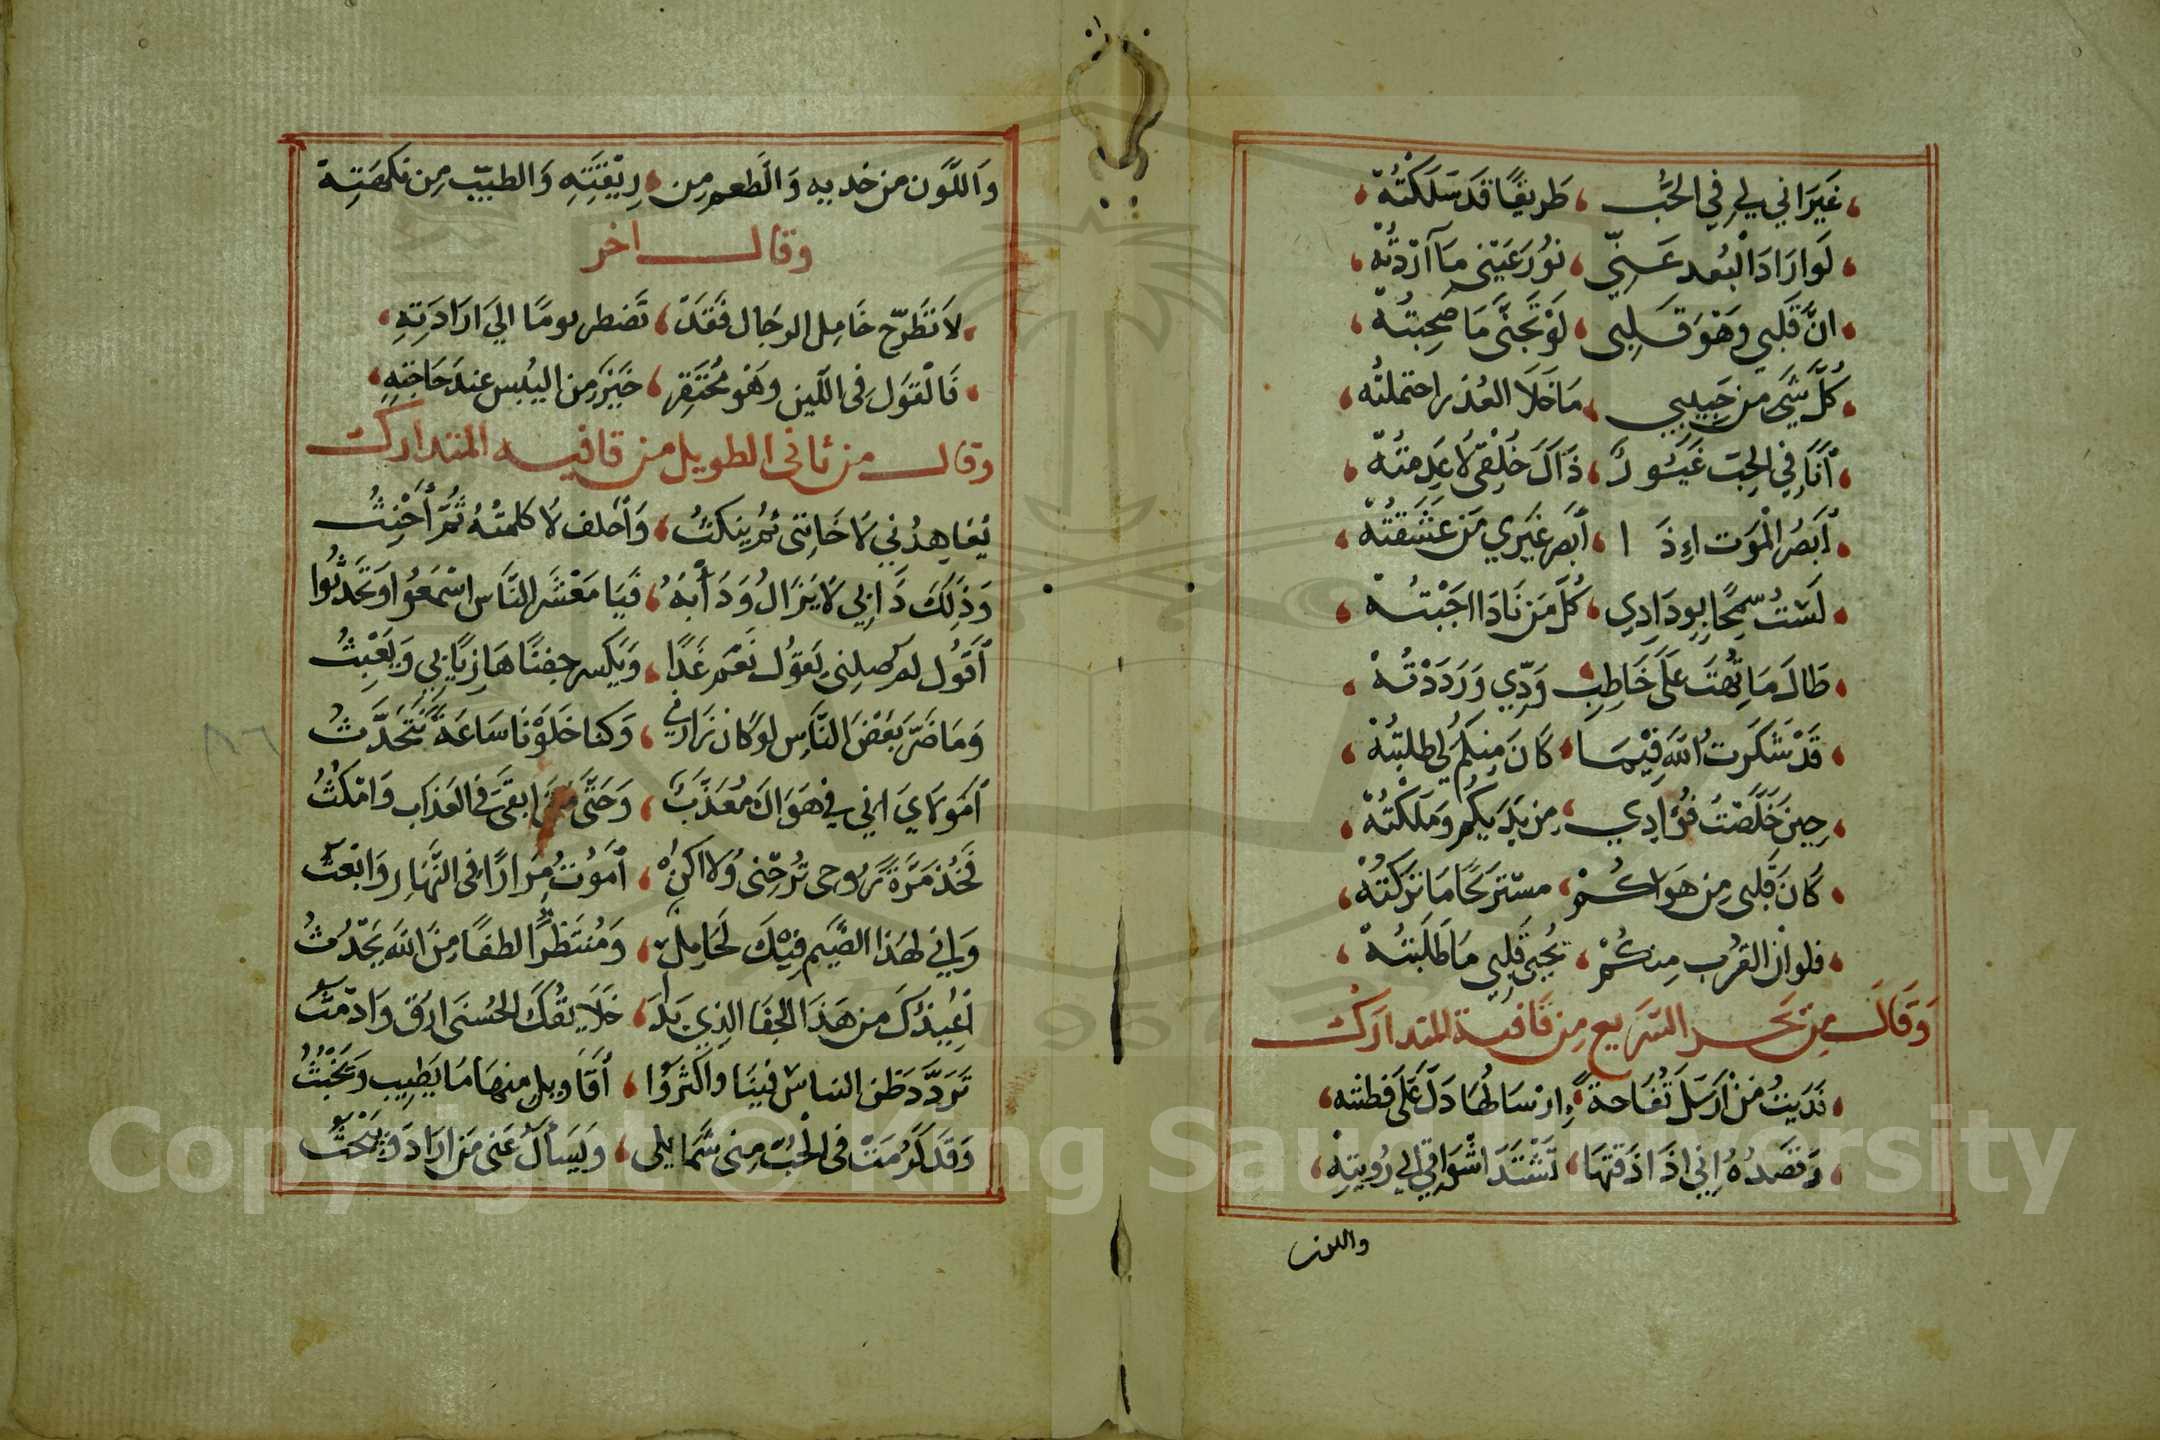 غَيرَانِي لِي فِي الحُبّ ، طَرِيقًا قَدسَلَكْتُهْ
لَوارَادَ الْبُعد عَنّي ، نوُرَعَيْني مَاآرَدْتُهْ
انَّ قَلْبي وهْوَ قَلبى ، لَوْ تَجَنَّى مَا صَحِبتُهْ
كُلّ شَي من حَبِيبي ، مَاخَلَا العُذر احتملتُهْ
أنَا فِي الحِبّ غَيوُرٌ ، ذَاكَ خُلقِى لاَ عَدِمتُهْ
أبَصُرُ الْمَوَت اِذَ ا ، أبَصر غَيَرِي مَن عَشَقتُهْ
لَسْتُ سِمْحًا بِودَادِي ، كُلّ مَن نَادَا اجَبْتُهْ
طَالَ مَا تِهْتَ عَلَى خَاطِبِ ، وَدِّي وَرَدَدْتُهْ
قَدْ شَكَرتُ اللهَ فِيْمَا ، كَانَ مِنكُم لِي طلبتُهْ
حِين خَلّصْتُ فُؤادِي ، مِن يَدَيكُم وَمَلَكْتُهْ
كَانَ قَلبى مِن هَوَاكُمْ ، مستريحًا مَا تركتُهْ
فلوان القرُب مِنكُمْ ، يُحيى قَلبِي مَا طَلَبْتُهْ
وَقَالَ مِن بَحر السَريع مِن قَافية المتدارَك
فَدَيتُ مَنْ اَرسَلَ تُفَاحة ، اِرْسَالُهَا دَلَّ عَلَى فطنته
وَقصَدُهُ اِنِي اذَا ذَقتهَا ، تَشْتَدَّ اشْوَاقي الي رُويتِهْ
واللون
وَاللَّون من خديهِ وَالَطعم مِن ، رِيْقَتِهِ وَالطيّب مِن نكهَتِهْ
وقال اخر
لاَ تَطَرّح خَامِل الرجَال فَقَدْ ، تَضطر يومًا الي ارَادَتِهِ
فَالْقوَل فِى اللّين وهَوُ مُحْتَقر ، خَيَرُ مِن اليُبس عِندَ حَاجتِهِ
وقال من ثانى الطويل من قافيه المتدارك
يُعَاهِدُني لاَ خَانِنى ثمُ ينكثُ ، وَأحلف لاَ كلمتُهُ ثُمّ أحْنِثُ
وَذَلِكَ دَابِي لاَ يَزَالُ وَدَأبهُ ، فَيَا مَعْشَر النَّاس اسْمَعُوا وَتَحَدّثُوا
أقوُل لهُ صلني يَقوُل نَعَم غَدًا ، وَيَكسر جفنًا هَازِيًا بِي وَيَعْبِثُ
وَمَا ضَرّ بَعْضَ النَّاسِ لوكَان زَارَنِي ، وَكنا خَلَوْنَا سَاعَةً نَتَحَدَّثُ
أمَولاَيَ انِي فِي هَوَاكَ مُعَذّبُ ، وَحَتَّى مَتَى ابقَىَ فى العَذاب وَامْكثُ
فَخُذ مَرّةً رُوحى تُرحنى وَلا اكنْ ، أمَوُتُ مِرَارًا فى النَّهَارِ وَابْعَثُ
وَاِني لهَذا الضّيم فِيْكَ لَحَامِلٌ ، وَمُنتَظرٌ الطفًا مِنَ اللهَ يَحْدُثُ
أعُيِيذكَ مِن هَذَا الجفَا الذِي بَدَا ، خَلاَ يقُكَ الحُسنَى ارَق وَادمَثُ
تَرَدَّدَ ظَن الناسْ فينَا واكَثَروُا ، أقَاويل مِنهَا مَا يَطِيب وَيَخْبُثُ
وَقَدكَرُمَتْ فى الْحُبّ مِنى شَمايلى ، وَيَسأل عَنى مَن ارَادَ وَيَبْحَثُ
٨٦